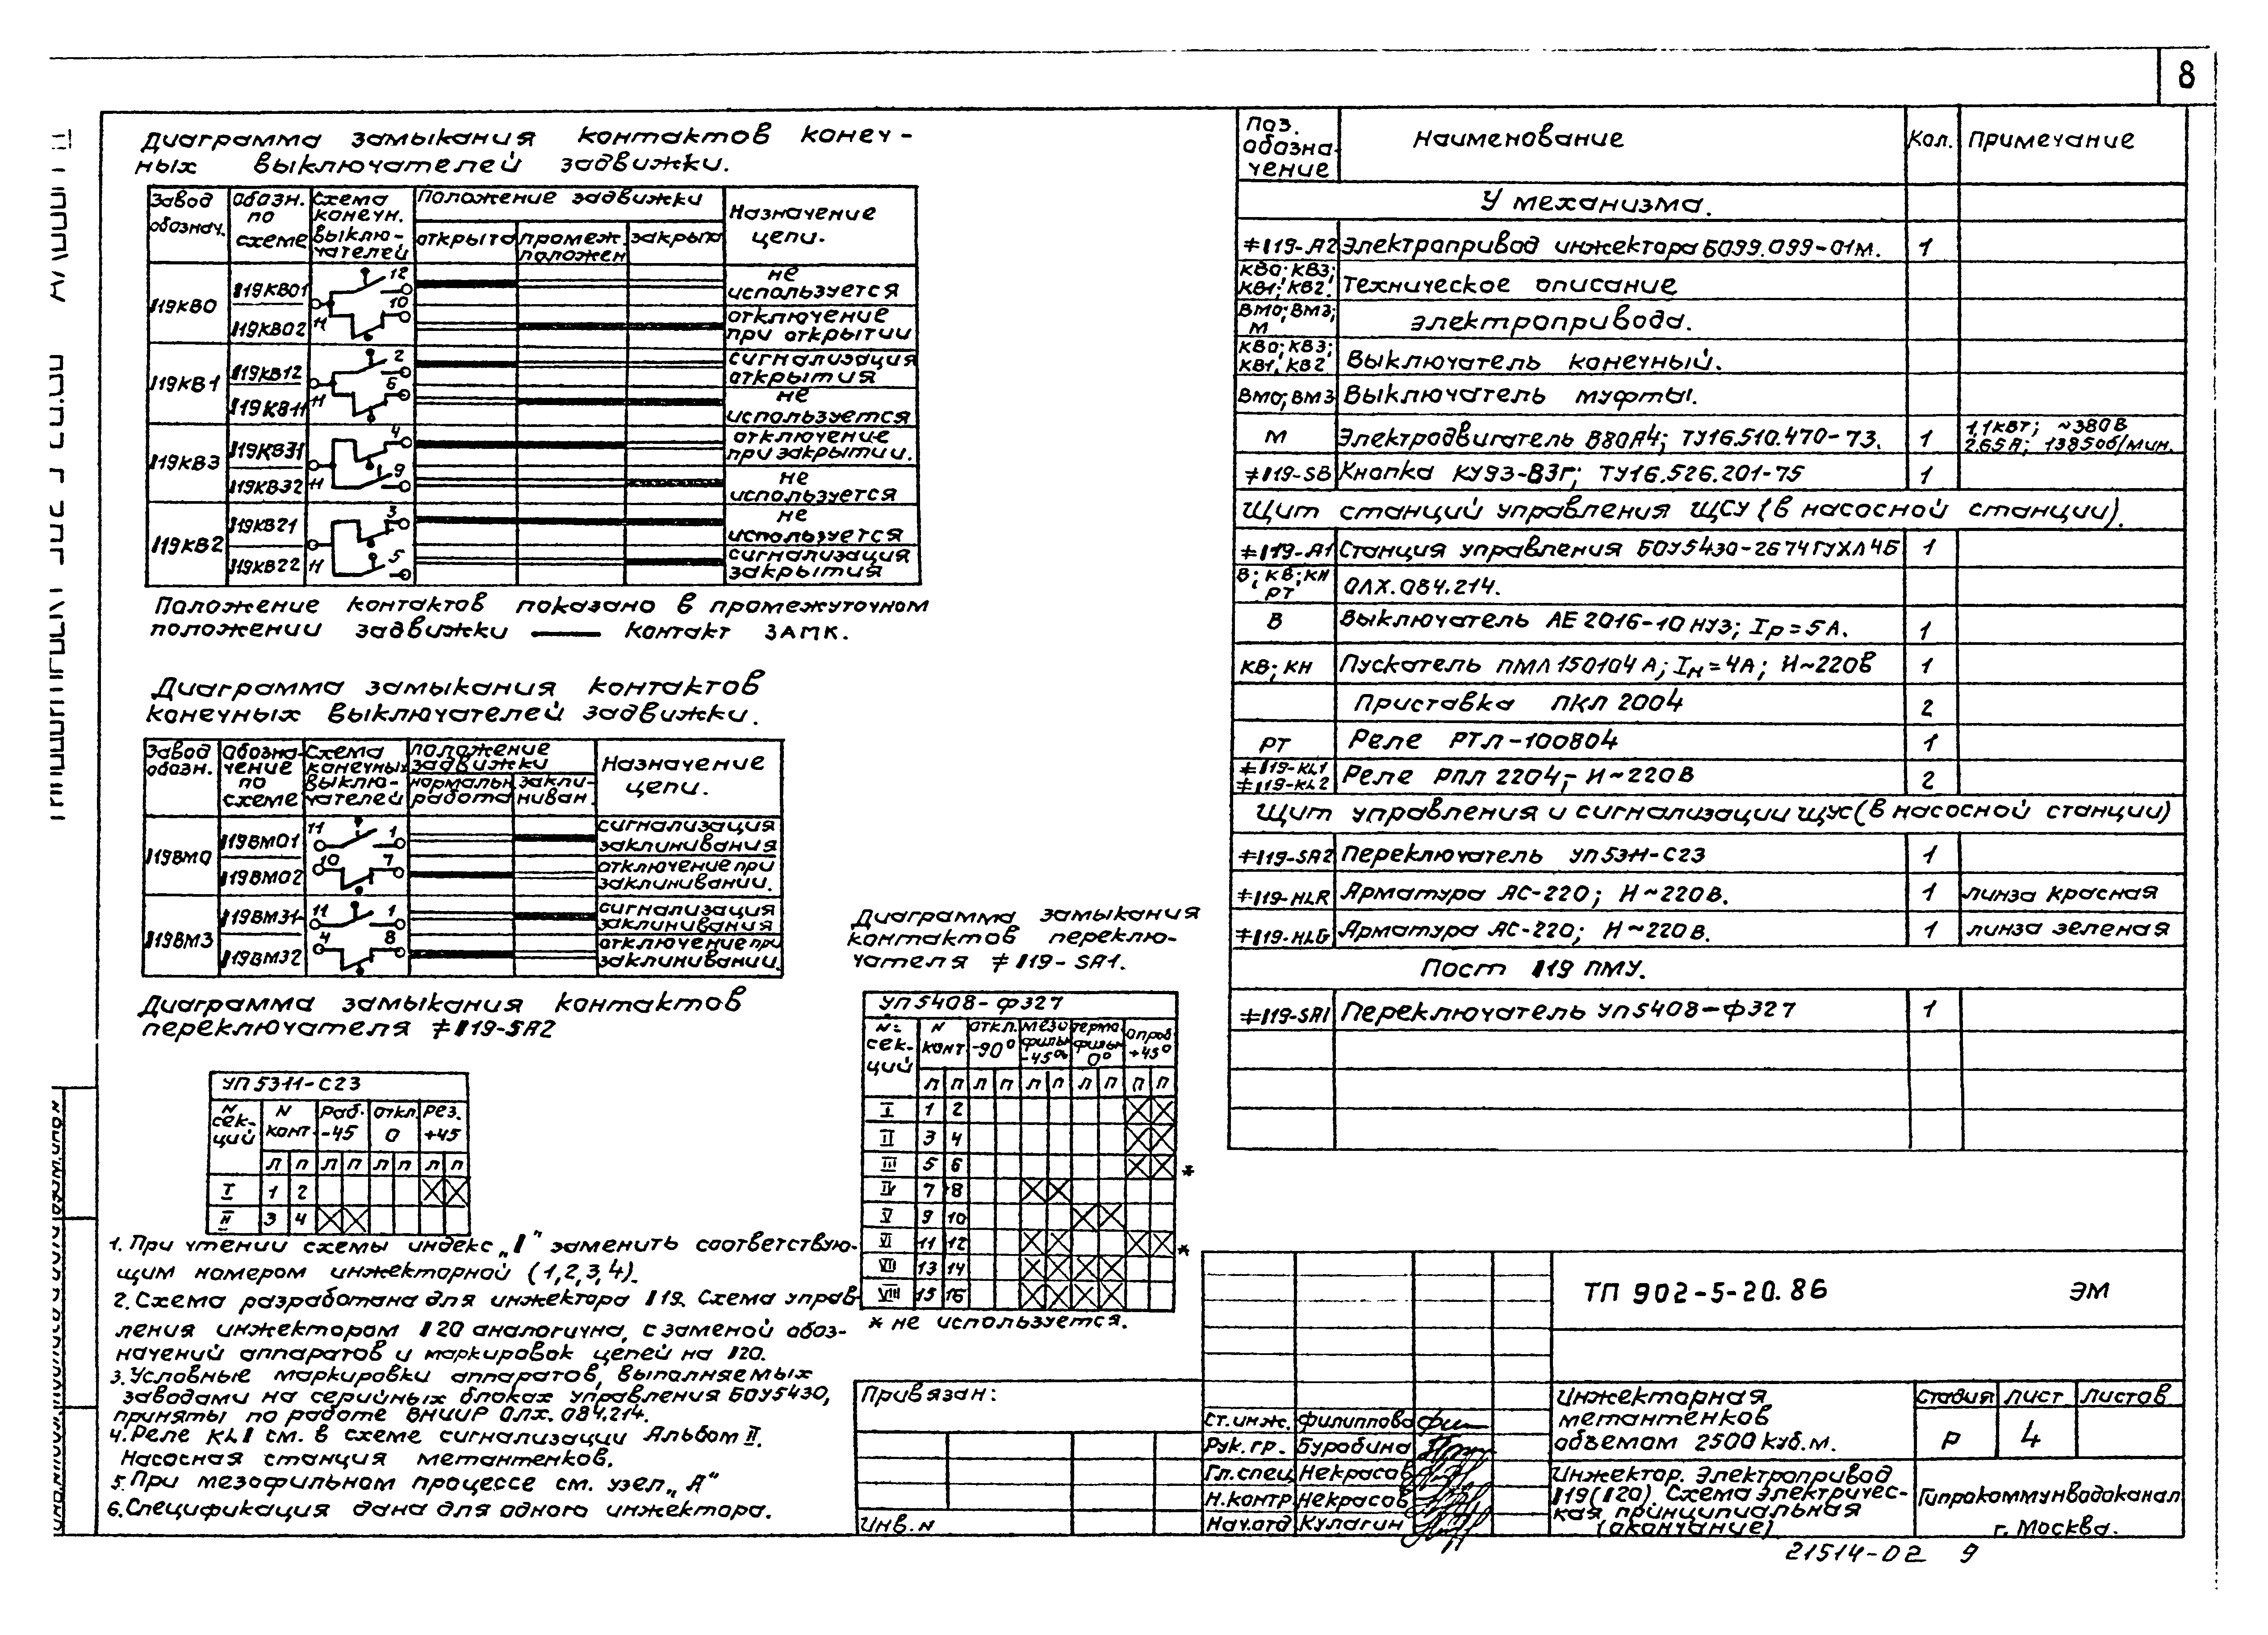 8
Диаграмма замыкания контактов конеч-
ных выключателей задвижки.
Завод обознач.
обозн. по схеме
Схема конечн. выклю-чателей
Положение задвижки
открыто
промеж. положен
закрыто
Назначение цепи.
119КВ0
119КВ01
12
не используется
119КВ02
11
10
отключение при открытии
119КВ1
119КВ12
2
сигнализация открытия
119КВ11
11
6
не используется
119КВ3
119КВ31
4
отключение при закрытии.
119КВ32
11
9
не используется
119КВ2
119КВ21
3
не используется
119КВ22
11
5
сигнализация закрытия
Положение контактов показано в промежуточном
положении задвижки контакт замк.
Диаграмма замыкания контактов
конечных выключателей задвижки.
Завод обозн.
Обозна-чение по схеме
Схема конечных выклю-чателей
положение задвижки
нормальн. работа
закли-ниван.
Назначение цепи.
119ВМ0
119ВМ01
11 1
сигнализация заклинивания
119ВМ02
10 7
отключение при заклинивании.
119ВМ3
119ВМ31
11 1
сигнализация заклинивания
119ВМ32
4 8
отключение при заклинивании.
Диаграмма замыкания контактов
переключателя ≠119-SA2
УП5311-С23
N сек-ций
N конт.
Раб. -45
откл. 0
рез. +45
Л П Л П Л П Л П
I 1 2
II 3 4
Диаграмма замыкания
контактов переклю-
чателя ≠119-SA1.
УП5408-Ф327
N= сек-ций
N конт
откл. -90°
мезо фильн -45°
термо фильн 0°
опроб +45°
Л П Л П Л П Л П П П
I 1 2
II 3 4
III 5 6 *
IV 7 8
V 9 10
VI 11 12 *
VII 13 14
VIII 15 16
* не используется.
1. При чтении схемы индекс „I" заменить соответствую-
щим номером инжекторной (1,2,3,4).
2. Схема разработана для инжектора 119. Схема управ-
ления инжектором 120 аналогична, с заменой обоз-
начений аппаратов и маркировок цепей на 120.
3. Условные маркировки аппаратов, выполняемых
заводами на серийных блоках управления БОУ5430,
приняты по работе ВНИИР ОЛХ.084.214.
4. Реле KL1 см. в схеме сигнализации Альбом II.
Насосная станция метантенков.
5. При мезофильном процессе см. узел „А"
6. Спецификация дана для одного инжектора.
Поз. обозна-чение
Наименование
Кол.
Примечание
У механизма.
≠119-А2 Электропривод инжектора Б099.099-01м. 1
КВ0; КВ3; КВ1; КВ2. Техническое описание
ВМ0; ВМ3; М электропривода.
КВ0; КВ3; КВ1, КВ2 Выключатель конечный.
ВМ0; ВМ3 Выключатель муфты.
М Электродвигатель В80А4; ТУ16.510.470-73. 1 1,1кВт; ~380В 2.65А; 1385об/мин.
≠119-SB Кнопка КУ93-ВЗГ; ТУ16.526.201-75 1
Щит станций управления ЩСУ (в насосной станции).
≠119-А1 Станция управления БОУ5430-2674ГУХЛ4Б 1
В; КВ; КН РТ ОЛХ.084.214.
В Выключатель АЕ2016-10НУЗ; Iр=5А. 1
КВ; КН Пускатель ПМЛ150104А; Iн=4А; И~220В 1
Приставка ПКЛ 2004 2
РТ Реле РТЛ-100804 1
≠119-KL1 ≠119-KL2 Реле РПЛ 2204; И~220В 2
Щит управления и сигнализации ЩУС (в насосной станции)
≠119-SA2 Переключатель УП5311-С23 1
≠119-HLR Арматура АС-220; И~220В. 1 линза красная
≠119-HLG Арматура АС-220; И~220В. 1 линза зеленая
Пост 119 ПМУ.
≠119-SA1 Переключатель УП5408-Ф327 1
Привязан:
Инв. N
Ст.инж. Филиппова
Рук. гр. Бурабина
Гл.спец Некрасов
Н.контр Некрасов
Нач.отд Кулагин
ТП 902-5-20.86 ЭМ
Инжекторная
метантенков
объемом 2500 куб.м.
Стадия Лист Листов
Р 4
Инжектор. Электропривод
119(120). Схема электричес-
кая принципиальная
(окончание)
Гипрокоммунводоканал
г. Москва.
21514-02 9